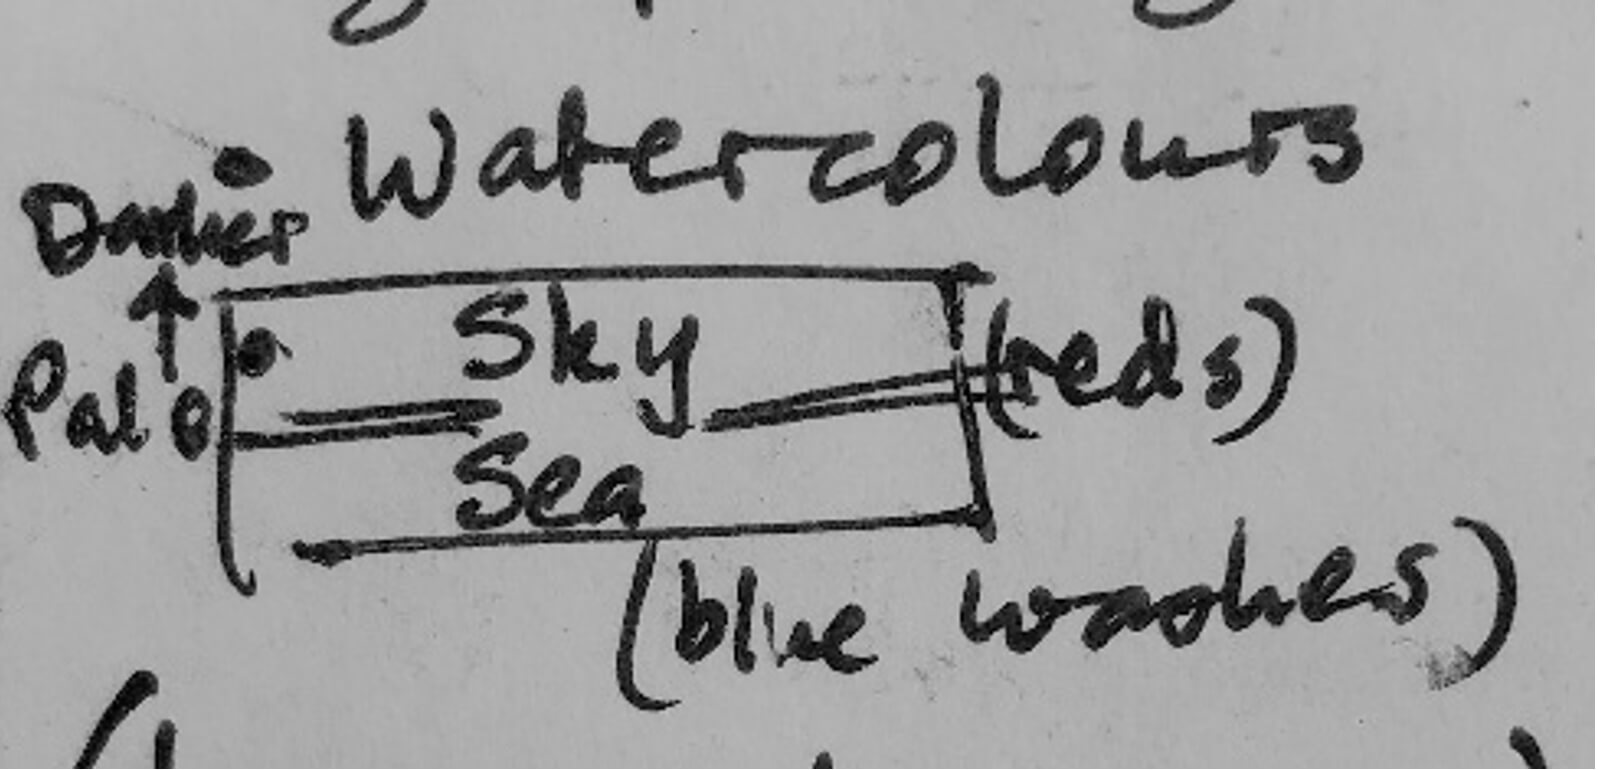 • Watercolours
Darker
↑
Pale
Sky (reds)
Sea
(blue washes)